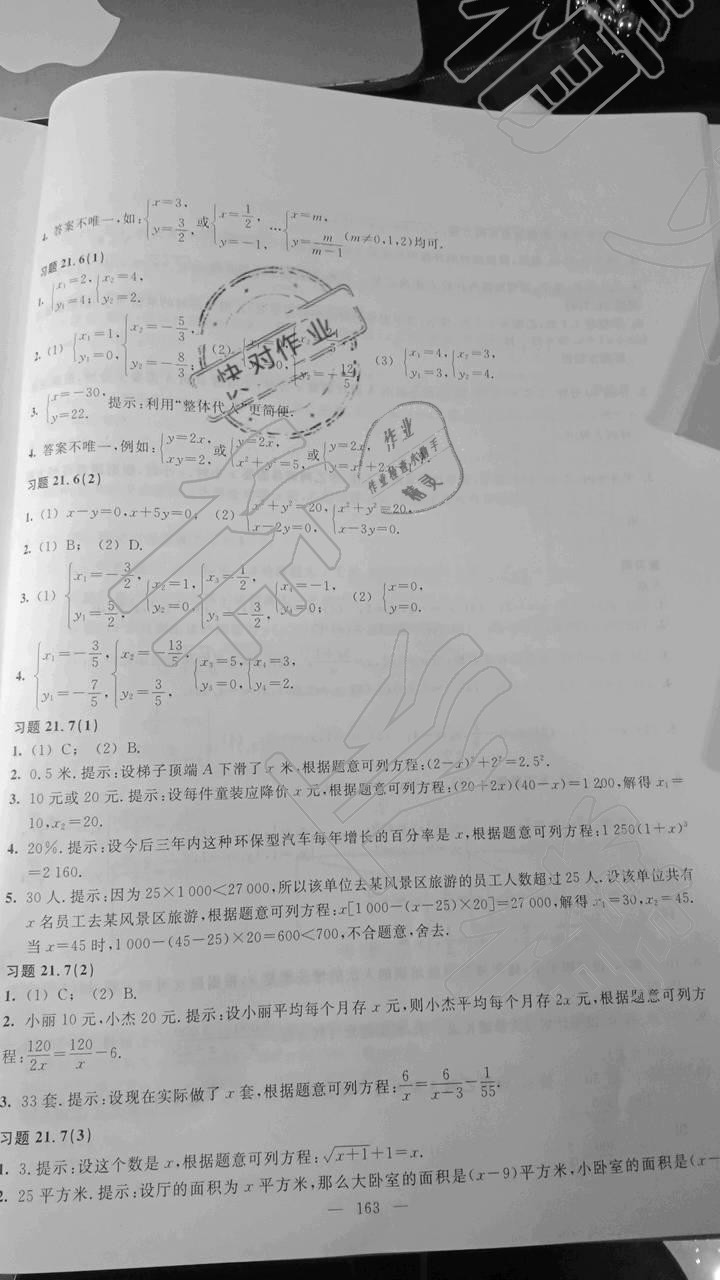 4. 答案不唯一,如:{x=3, y=3/2, 或{x=1/2, y=-1, …{x=m, y=m/(m-1) (m≠0,1,2)均可.
习题 21.6(1)
1. {x₁=2, y₁=4; {x₂=4, y₂=2.
2. (1) {x₁=1, y₁=0, {x₂=-5/3, y₂=-8/3; (2) (3) {x₁=4, y₁=3, {x₂=3, y₂=4.
3. {x=-30, y=22. 提示:利用“整体代入”更简便.
4. 答案不唯一,例如:{y=2x, xy=2, 或{y=2x, x²+y²=5, 或{y=2x,
习题 21.6(2)
1. (1) x-y=0,x+5y=0; (2) {x²+y²=20, x-2y=0; {x²+y²=20, x-3y=0.
2. (1) B; (2) D.
3. (1) {x₁=-3/2, y₁=5/2, {x₂=1, y₂=0, {x₃=1/2, y₃=-3/2, {x₄=-1, y₄=0; (2) {x=0, y=0.
4. {x₁=-3/5, y₁=-7/5, {x₂=-13/5, y₂=3/5, {x₃=5, y₃=0, {x₄=3, y₄=2.
习题 21.7(1)
1. (1) C; (2) B.
2. 0.5 米.提示:设梯子顶端 A 下滑了 x 米,根据题意可列方程:(2-x)²+2²=2.5².
3. 10 元或 20 元.提示:设每件童装应降价 x 元,根据题意可列方程:(20+2x)(40-x)=1 200,解得 x₁=
10,x₂=20.
4. 20%.提示:设今后三年内这种环保型汽车每年增长的百分率是 x,根据题意可列方程:1 250(1+x)³
=2 160.
5. 30 人.提示:因为 25×1 000<27 000,所以该单位去某风景区旅游的员工人数超过 25 人.设该单位共有
x 名员工去某风景区旅游,根据题意可列方程:x[1 000-(x-25)×20]=27 000,解得 x₁=30,x₂=45.
当 x=45 时,1 000-(45-25)×20=600<700,不合题意,舍去.
习题 21.7(2)
1. (1) C; (2) B.
2. 小丽 10 元,小杰 20 元.提示:设小丽平均每个月存 x 元,则小杰平均每个月存 2x 元,根据题意可列方
程:120/2x=120/x-6.
3. 33 套.提示:设现在实际做了 x 套,根据题意可列方程:6/x=6/(x-3)-1/55.
习题 21.7(3)
1. 3.提示:设这个数是 x,根据题意可列方程:√(x+1)+1=x.
2. 25 平方米.提示:设厅的面积为 x 平方米,那么大卧室的面积是(x-9)平方米,小卧室的面积是(x-
— 163 —
快对作业
作业
作业检查小助手
精灵